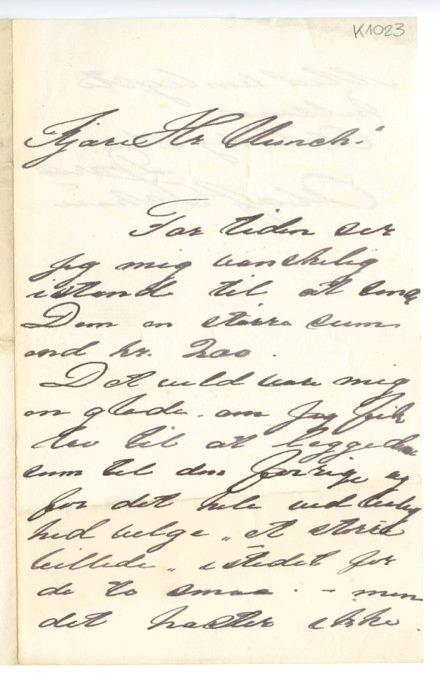 K1023
Kjære Hr Munch!
For tiden ser
jeg mig vanskelig
istand til at sende
Dem en større sum
end kr. 200.
Det vild være mig
en glæde, om jeg fik
lov til at lægge den
sum til den forrige og
for det hele ved leilig
hed velge "et større
billede" istedet for
de to smaa. - men
det haster ikke.